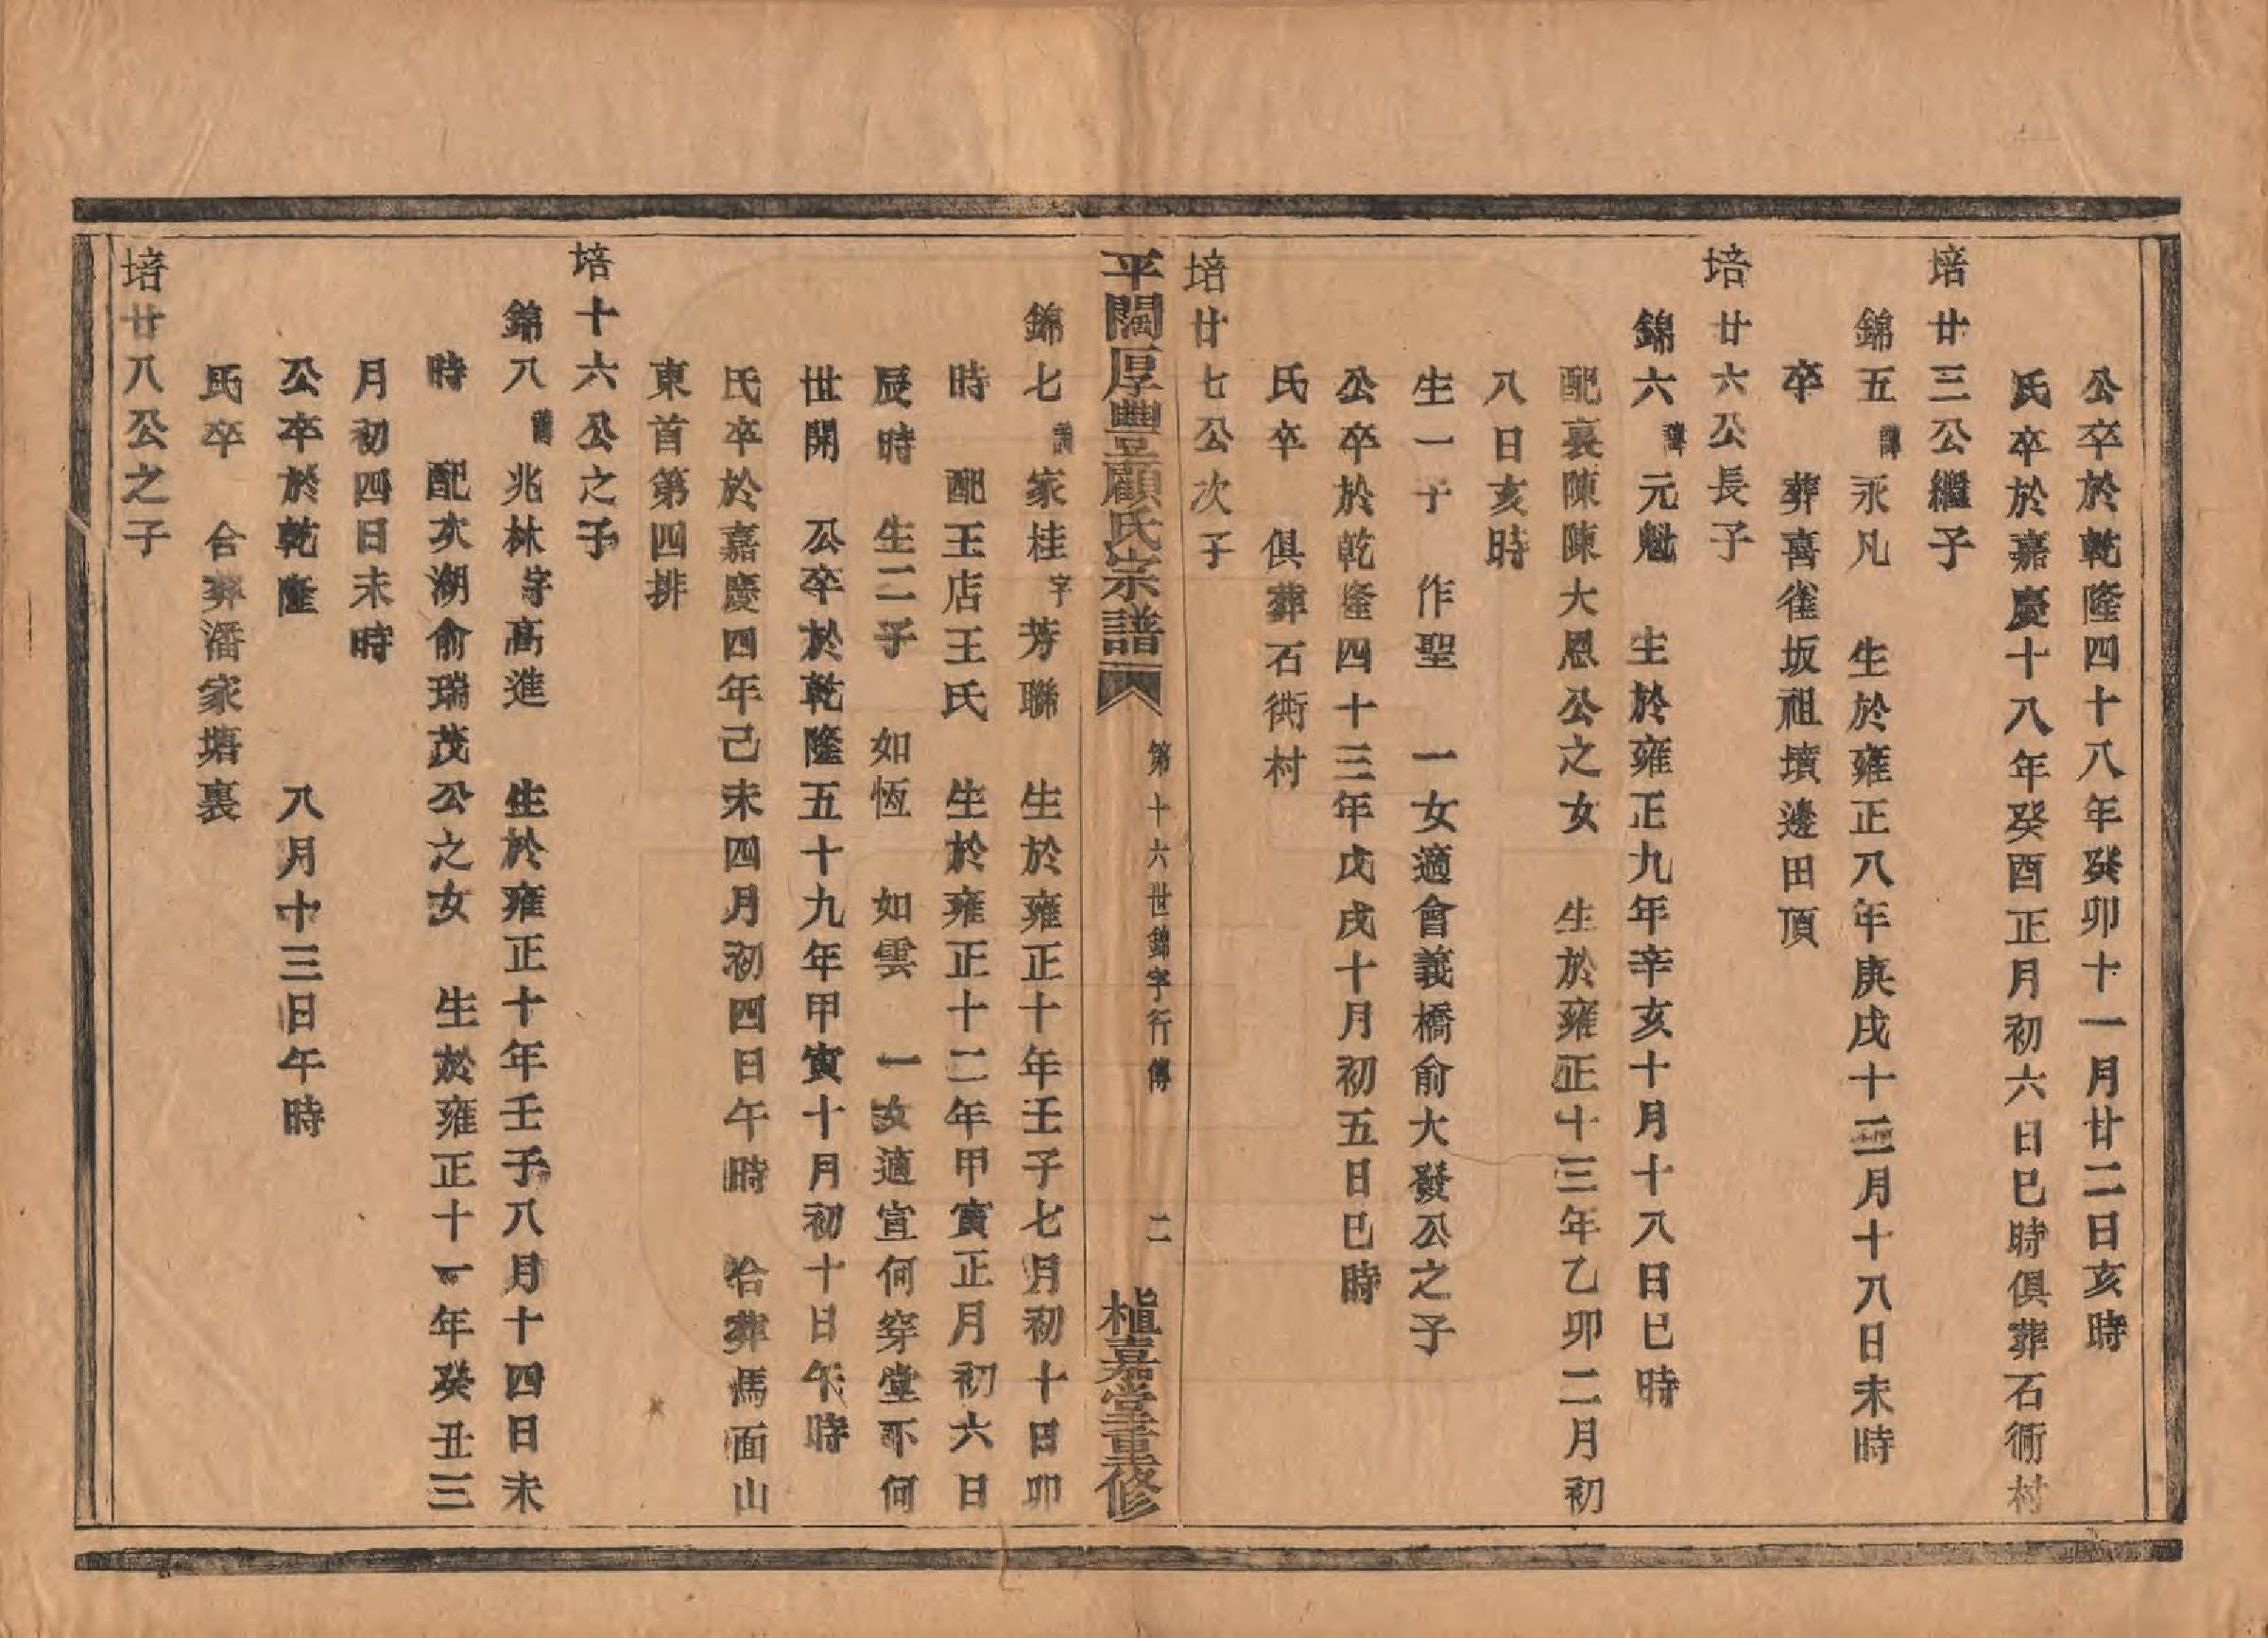 公卒於乾隆四十八年癸卯十一月廿二日亥時
氏卒於嘉慶十八年癸酉正月初六日巳時俱葬石衕村
培廿三公繼子
錦五諱永凡　生於雍正八年庚戌十二月十八日未時
卒　葬喜雀坂祖墳邊田頂
培廿六公長子
錦六諱元魁　生於雍正九年辛亥十月十八日巳時
配裏陳陳大恩公之女　生於雍正十三年乙卯二月初
八日亥時
生一子　作聖　一女適會義橋俞大發公之子
公卒於乾隆四十三年戊戌十月初五日巳時
氏卒　俱葬石衕村
培廿七公次子
平闊厚豐顧氏宗譜　第十六世錦字行傳　二　植嘉堂重修
錦七諱家桂字芳聯　生於雍正十年壬子七月初十日卯
時　配王店王氏　生於雍正十二年甲寅正月初六日
辰時　生二子　如恆　如雲　一女適宣何穿堂下何
世開　公卒於乾隆五十九年甲寅十月初十日午時
氏卒於嘉慶四年己未四月初四日午時　合葬馬面山
東首第四排
培十六公之子
錦八諱兆林字高進　生於雍正十年壬子八月十四日未
時　配次湖俞瑞茂公之女　生於雍正十一年癸丑三
月初四日未時
公卒於乾隆　八月十三日午時
氏卒　合葬潘家塘裏
培廿八公之子